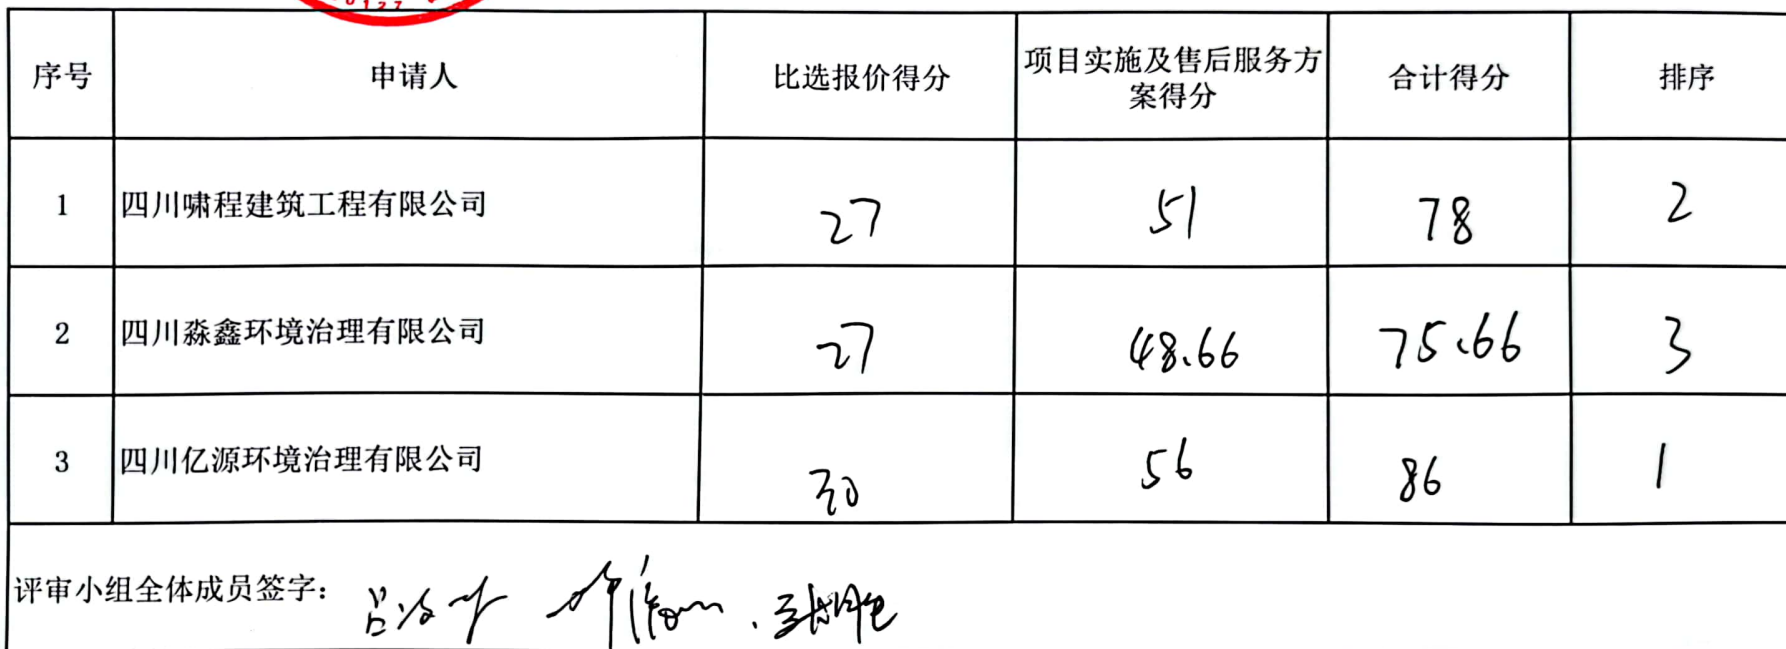 0127
序号 申请人 比选报价得分 项目实施及售后服务方案得分 合计得分 排序
1 四川啸程建筑工程有限公司 27 51 78 2
2 四川淼鑫环境治理有限公司 27 48.66 75.66 3
3 四川亿源环境治理有限公司 30 56 86 1
评审小组全体成员签字：